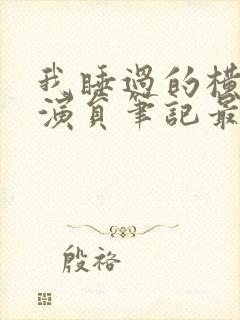 我睡過的橫
演員筆記最
殷袼